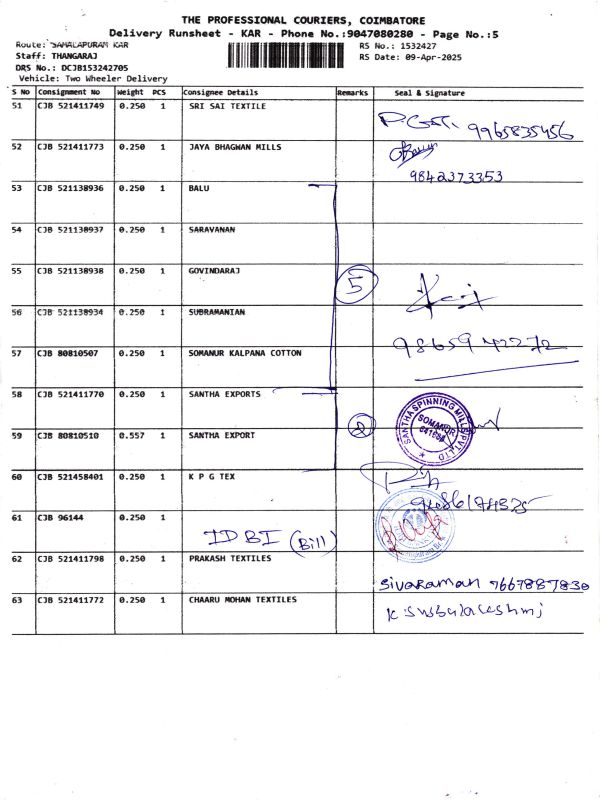 THE PROFESSIONAL COURIERS, COIMBATORE
Delivery Runsheet - KAR - Phone No.:9047080280 - Page No.:5
Route: SAMALAPURAM KAR
RS No.: 1532427
Staff: THANGARAJ
RS Date: 09-Apr-2025
DRS No.: DCJB153242705
Vehicle: Two Wheeler Delivery
S No Consignment No Weight PCS Consignee Details Remarks Seal & Signature
51 CJB 521411749 0.250 1 SRI SAI TEXTILE
9965835456
52 CJB 521411773 0.250 1 JAYA BHAGWAN MILLS
9842373353
53 CJB 521138936 0.250 1 BALU
54 CJB 521138937 0.250 1 SARAVANAN
55 CJB 521138938 0.250 1 GOVINDARAJ
5
56 CJB 521138934 0.250 1 SUBRAMANIAN
98659 42272
57 CJB 80810507 0.250 1 SOMANUR KALPANA COTTON
58 CJB 521411770 0.250 1 SANTHA EXPORTS
SANTHA SPINNING MILLS PVT LTD
SOMANUR
59 CJB 80810510 0.557 1 SANTHA EXPORT
60 CJB 521458401 0.250 1 K P G TEX
61 CJB 96144 0.250 1
IDBI (Bill)
62 CJB 521411798 0.250 1 PRAKASH TEXTILES
Sivaraman 7667887830
63 CJB 521411772 0.250 1 CHAARU MOHAN TEXTILES